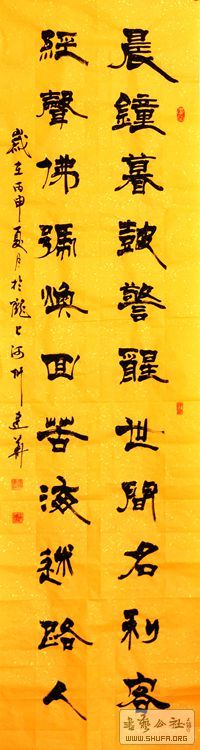 晨鐘暮鼓警醒世間名利客
經聲佛號煥回苦海迷路人
歲在丙申夏月於隴上河州建華
書藝公社
WWW.SHUFA.ORG